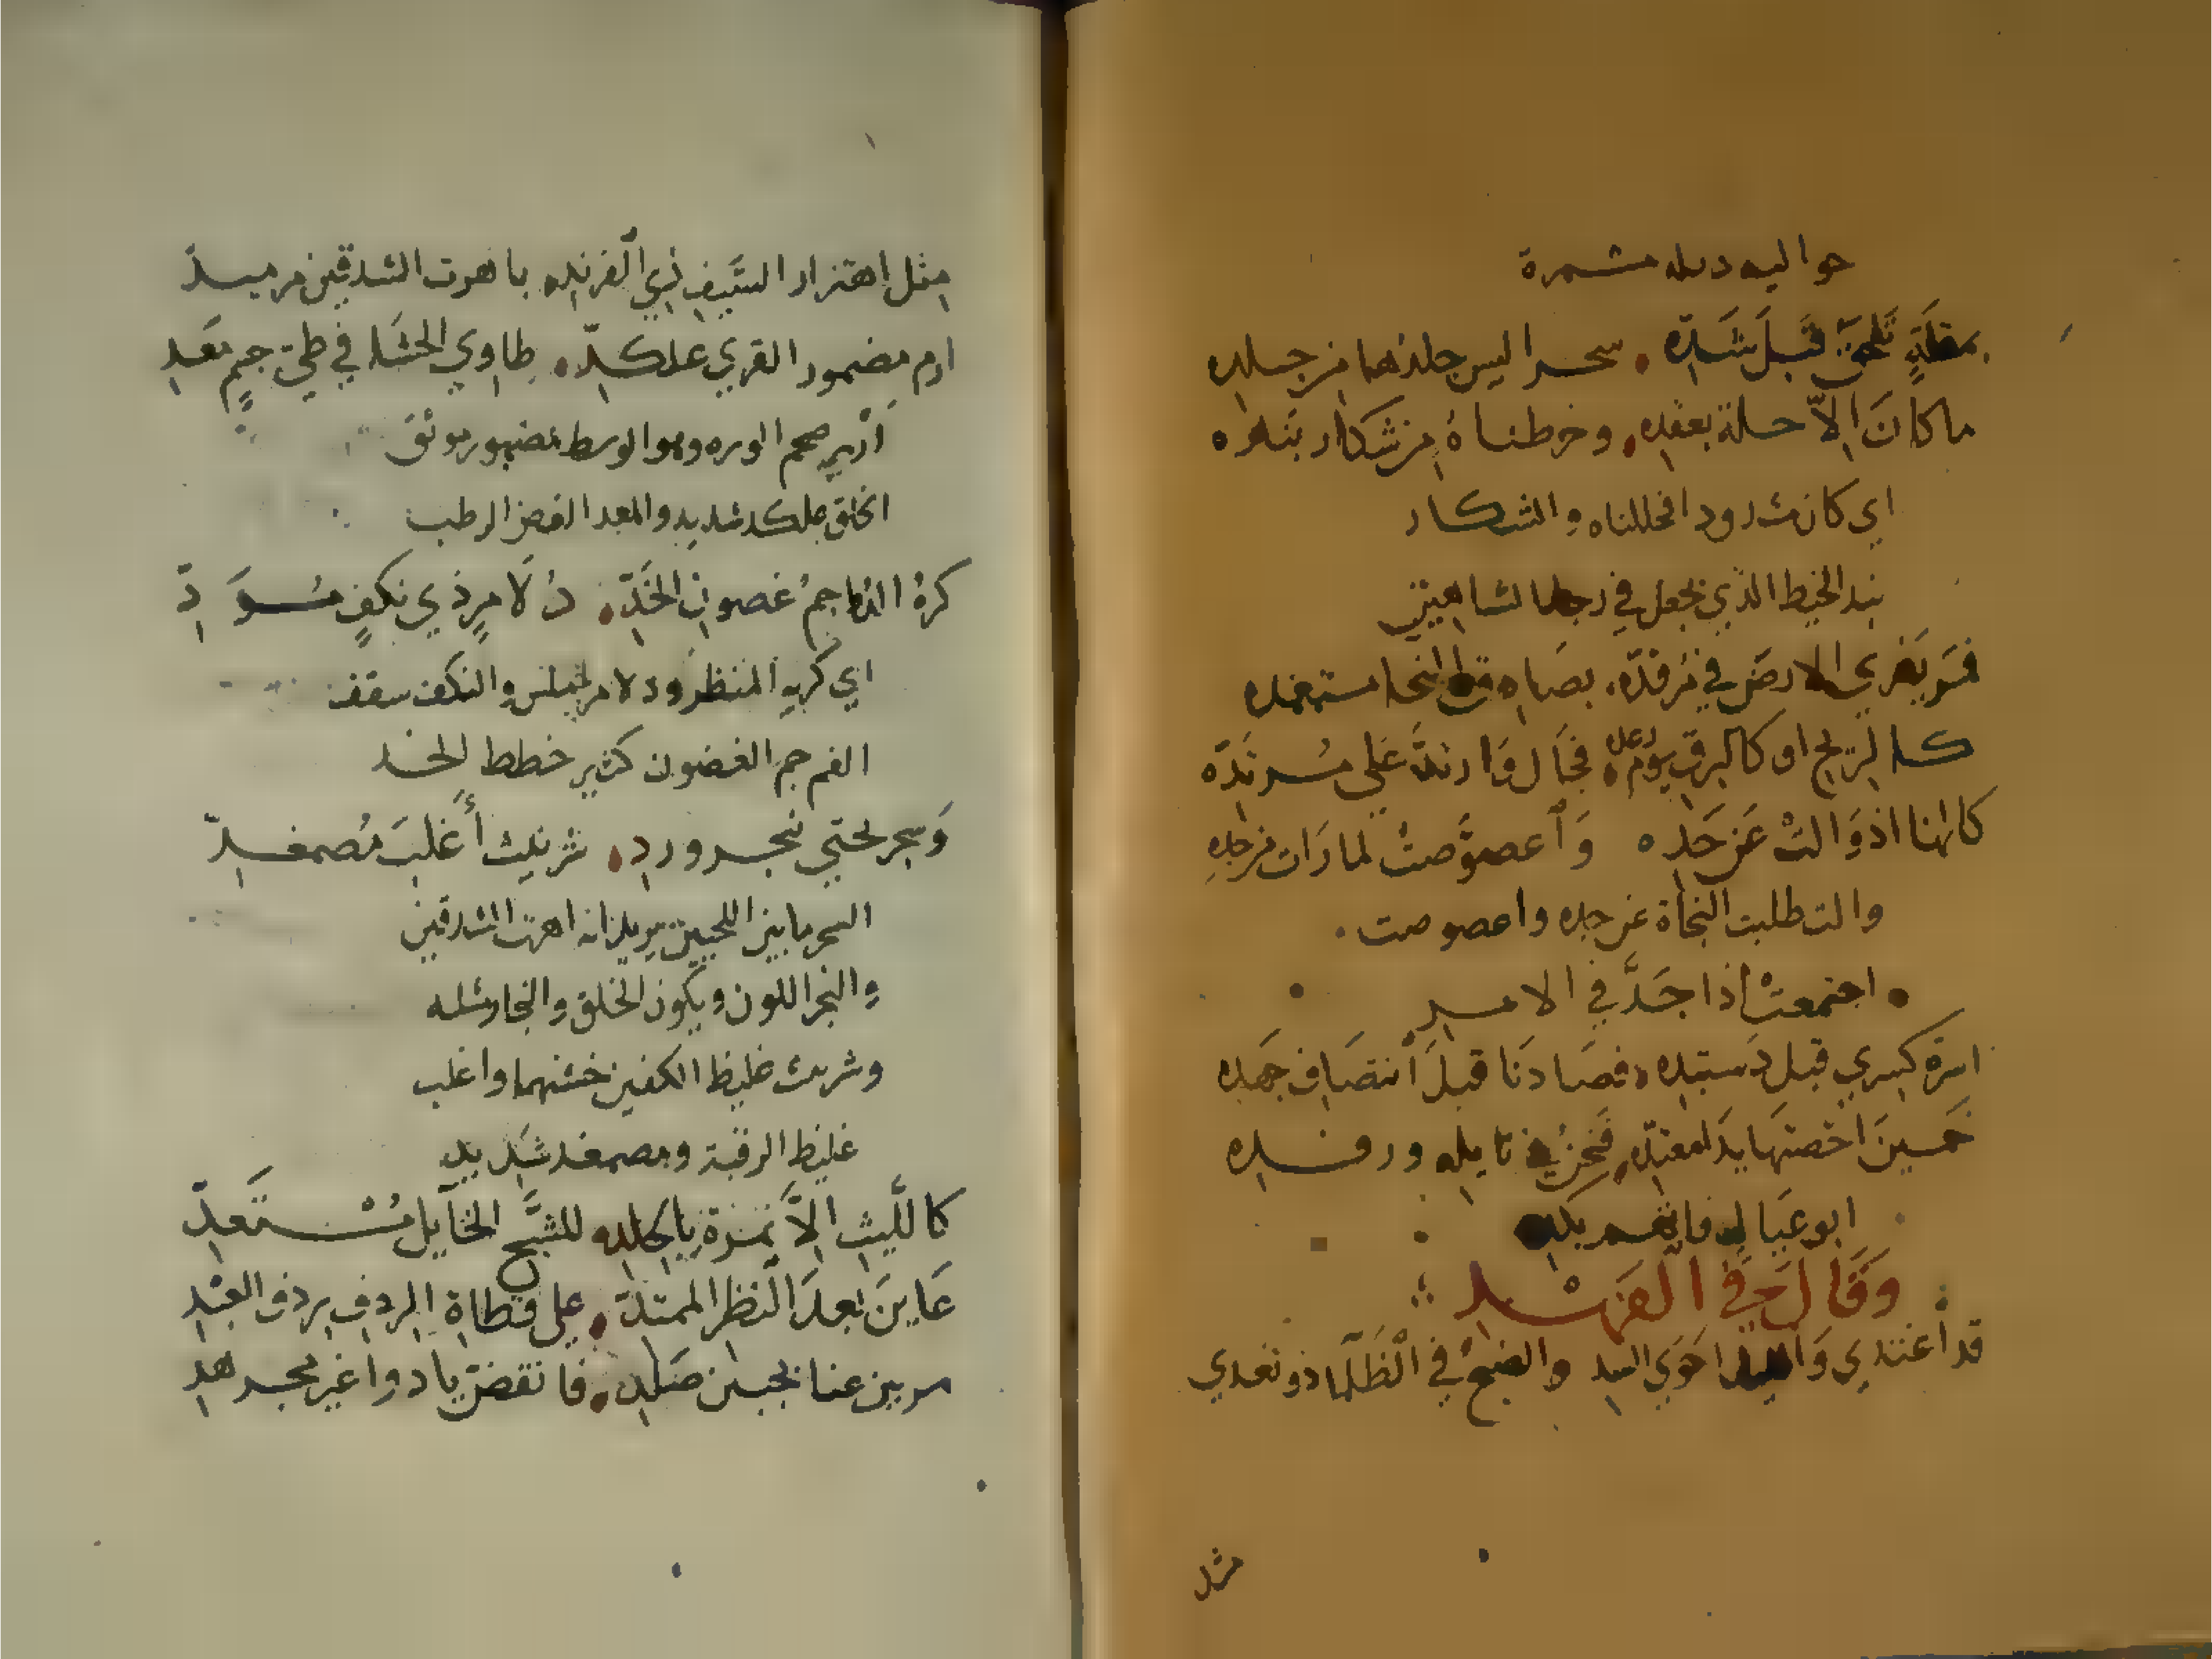 حواليه دىله مشمرة
بمقلةٍ تلحق قبل شَدّه . سحرا ليس جلدها من جلده
ما كانَ الاّ حلة بعقده . وخرطناهُ من شكار بنده
اي كان مشدودا فحللناه والشكار
بند الخيط الذي يجعل في رجل الشاهين
فمَر يَفري الارضَ في مَرقدّه . بصَادق النحا مستعده
كالريح او كالبرق يوم رعده فجَال وَارتدّ عَلي مُسرندّه
كانها اذ وَالتْ عَن حَده وَأعصوَّصتْ لما رَات من جده
والت طلبت النجاة عن جده واعصوصت .
اجتمعتْ اذا جَدَّ في الامر
اسرة كسري قبل دَستبده . فصَادنَا قبلَ أنتصَاف جَهده
خمسينَ احصتها يدَا معتدّه . فنحن في نايله ورفده
ابو عيَالٍ فانعم بكده
وَقَالَ في الفَهْد
قد أغتدي وَالليل احَوي البرد والصبحُ في الظَلَما ذو تعدي
مثل
مثل اهتزاز السَّيف ذي الفرند . باهرت الشدقين مرميدّ
ازم مضمور القري علكدّ . طاوي الحشا في طيّ جيمٍ مَعد
ازبر ضخم الوره وهو الوسط مضبور موثق
الخلق علكد شديد والمعد الغض الرطب
كرهُ الرُّوا جمُ غصونِ الخَدّ . دُلَامِرٍ ذي نكفٍ مُسوَدّ
اي كريه المنظر ودلامر املس والنكف سقف
الفم جم الغضون كثير خطط الخد
وَسحر لحتي نجر ورد . شرنبث أغلبَ مُصمغدّ
السحر ما بين اللحيين يريد انه اهرت الشدقين
والنجر اللون ويكون الخلق والنجار مثله
وشرنبث غليظ الكفين خشنهما واغلب
غليظ الرقبة ومصمغد شديد
كالليثِ الاَّ نمرَة بالجلد . للشبَح الخَايل مُسْتَعدّ
عَاينَ بعدَ النظر الممتدّ . علي قطاة الردف ردف العَبْد
سربين عنا بجبين صَلد . فانقضّ يادوا غير مجرهد